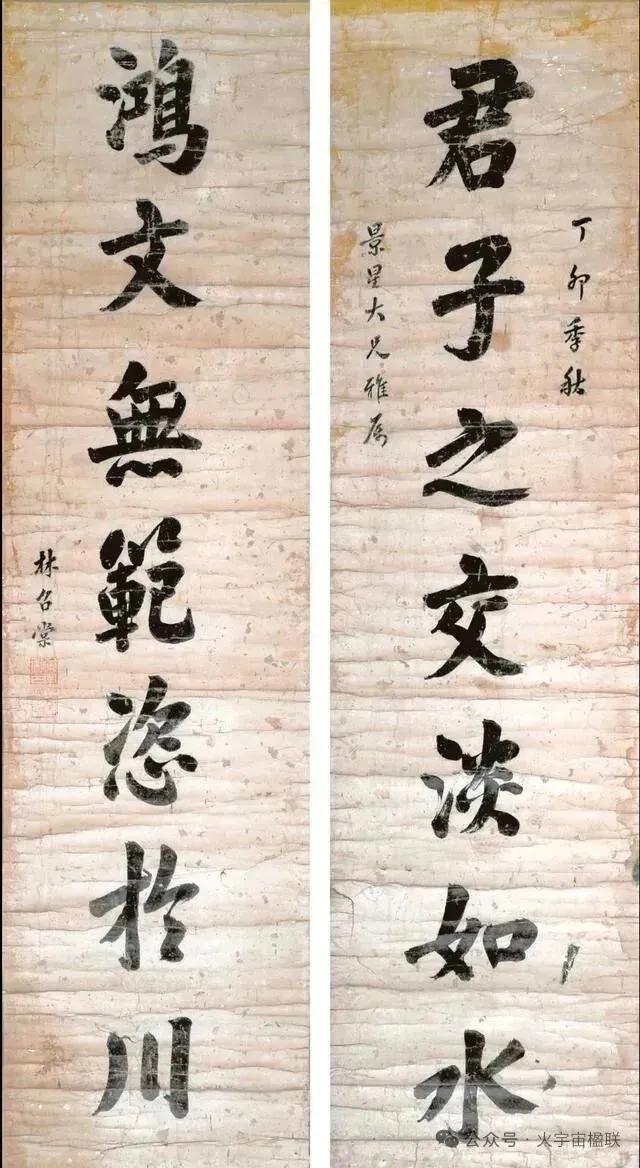 丁卯季秋
君子之交淡如水
景星大兄雅属
鸿文無範恣於川
林召棠
公众号·火宇宙楹联